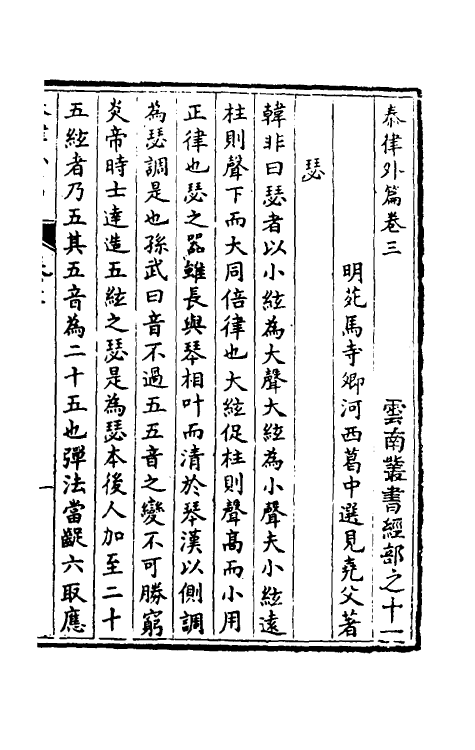 泰律外篇卷三
雲南叢書經部之十一
明苑馬寺卿河西葛中選見堯父著
瑟
韓非曰瑟者以小絃為大聲大絃為小聲夫小絃遠
柱則聲下而大同倍律也大絃促柱則聲高而小用
正律也瑟之器雖長與琴相叶而清於琴漢以側調
為瑟調是也孫武曰音不過五五音之變不可勝窮
炎帝時士達造五絃之瑟是為瑟本後人加至二十
五絃者乃五其五音為二十五也彈法當齪六取應